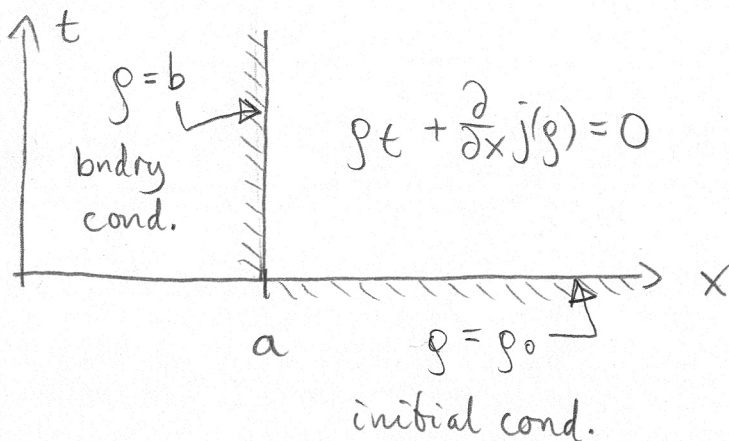 t
ρ = b
bndry
cond.
ρt + ∂/∂x j(ρ) = 0
x
a
ρ = ρ0
initial cond.